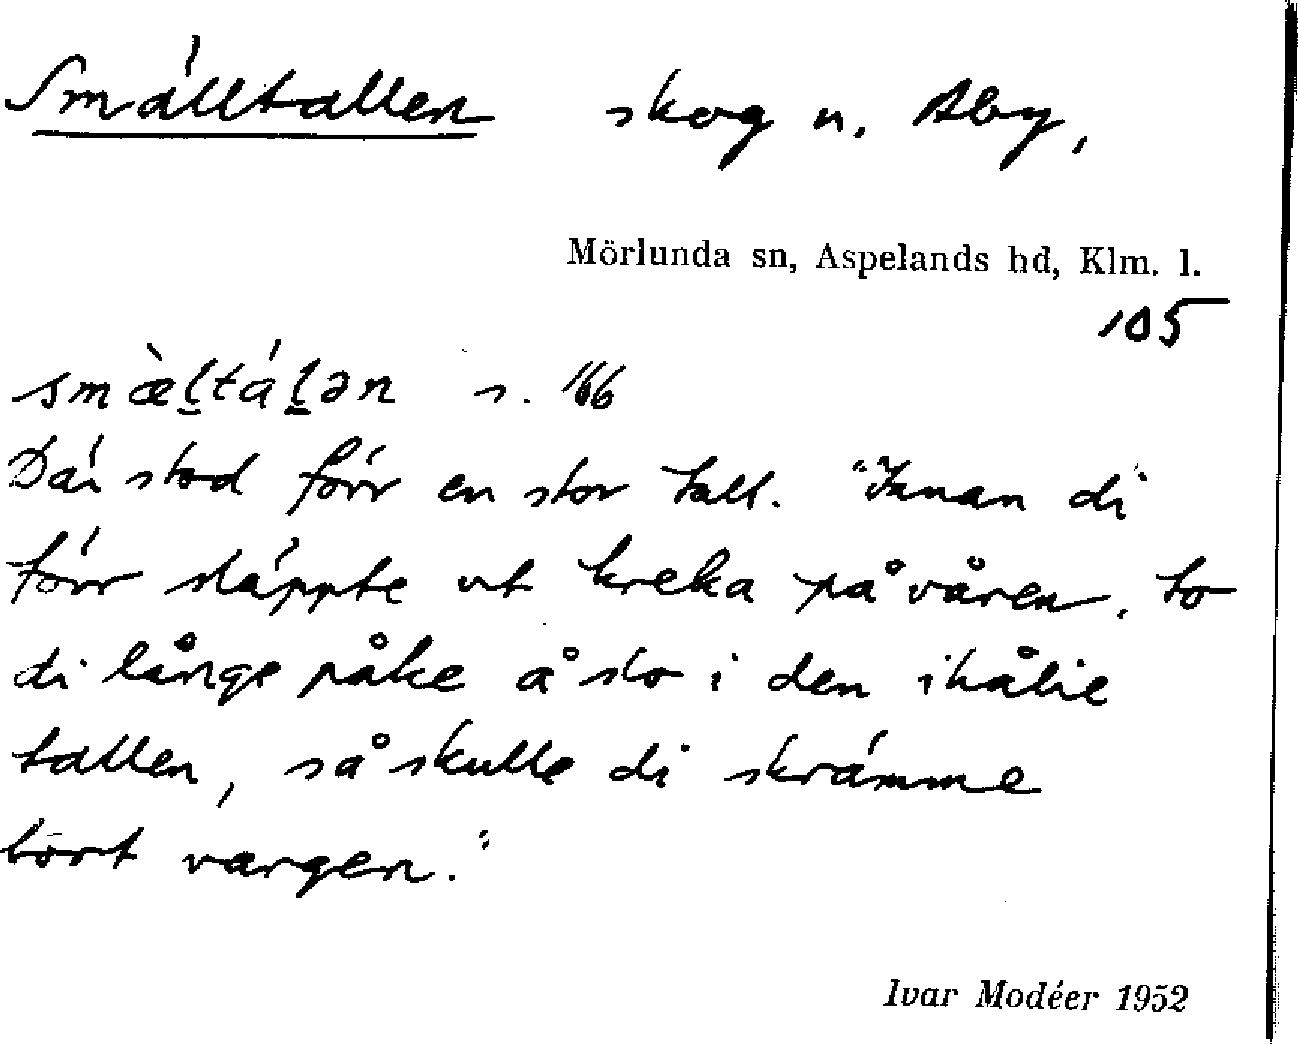 Smälltallen skog n. Åby,
Mörlunda sn, Aspelands hd, Klm. l.
105
smæ̀l̠tál̠ən s. 66
Där stod förr en stor tall. "Innan di
förr släppte ut kreka på våren, to
di långe påke å slo i den ihålie
tallen, så skulle di skrämme
bort vargen."
Ivar Modéer 1952